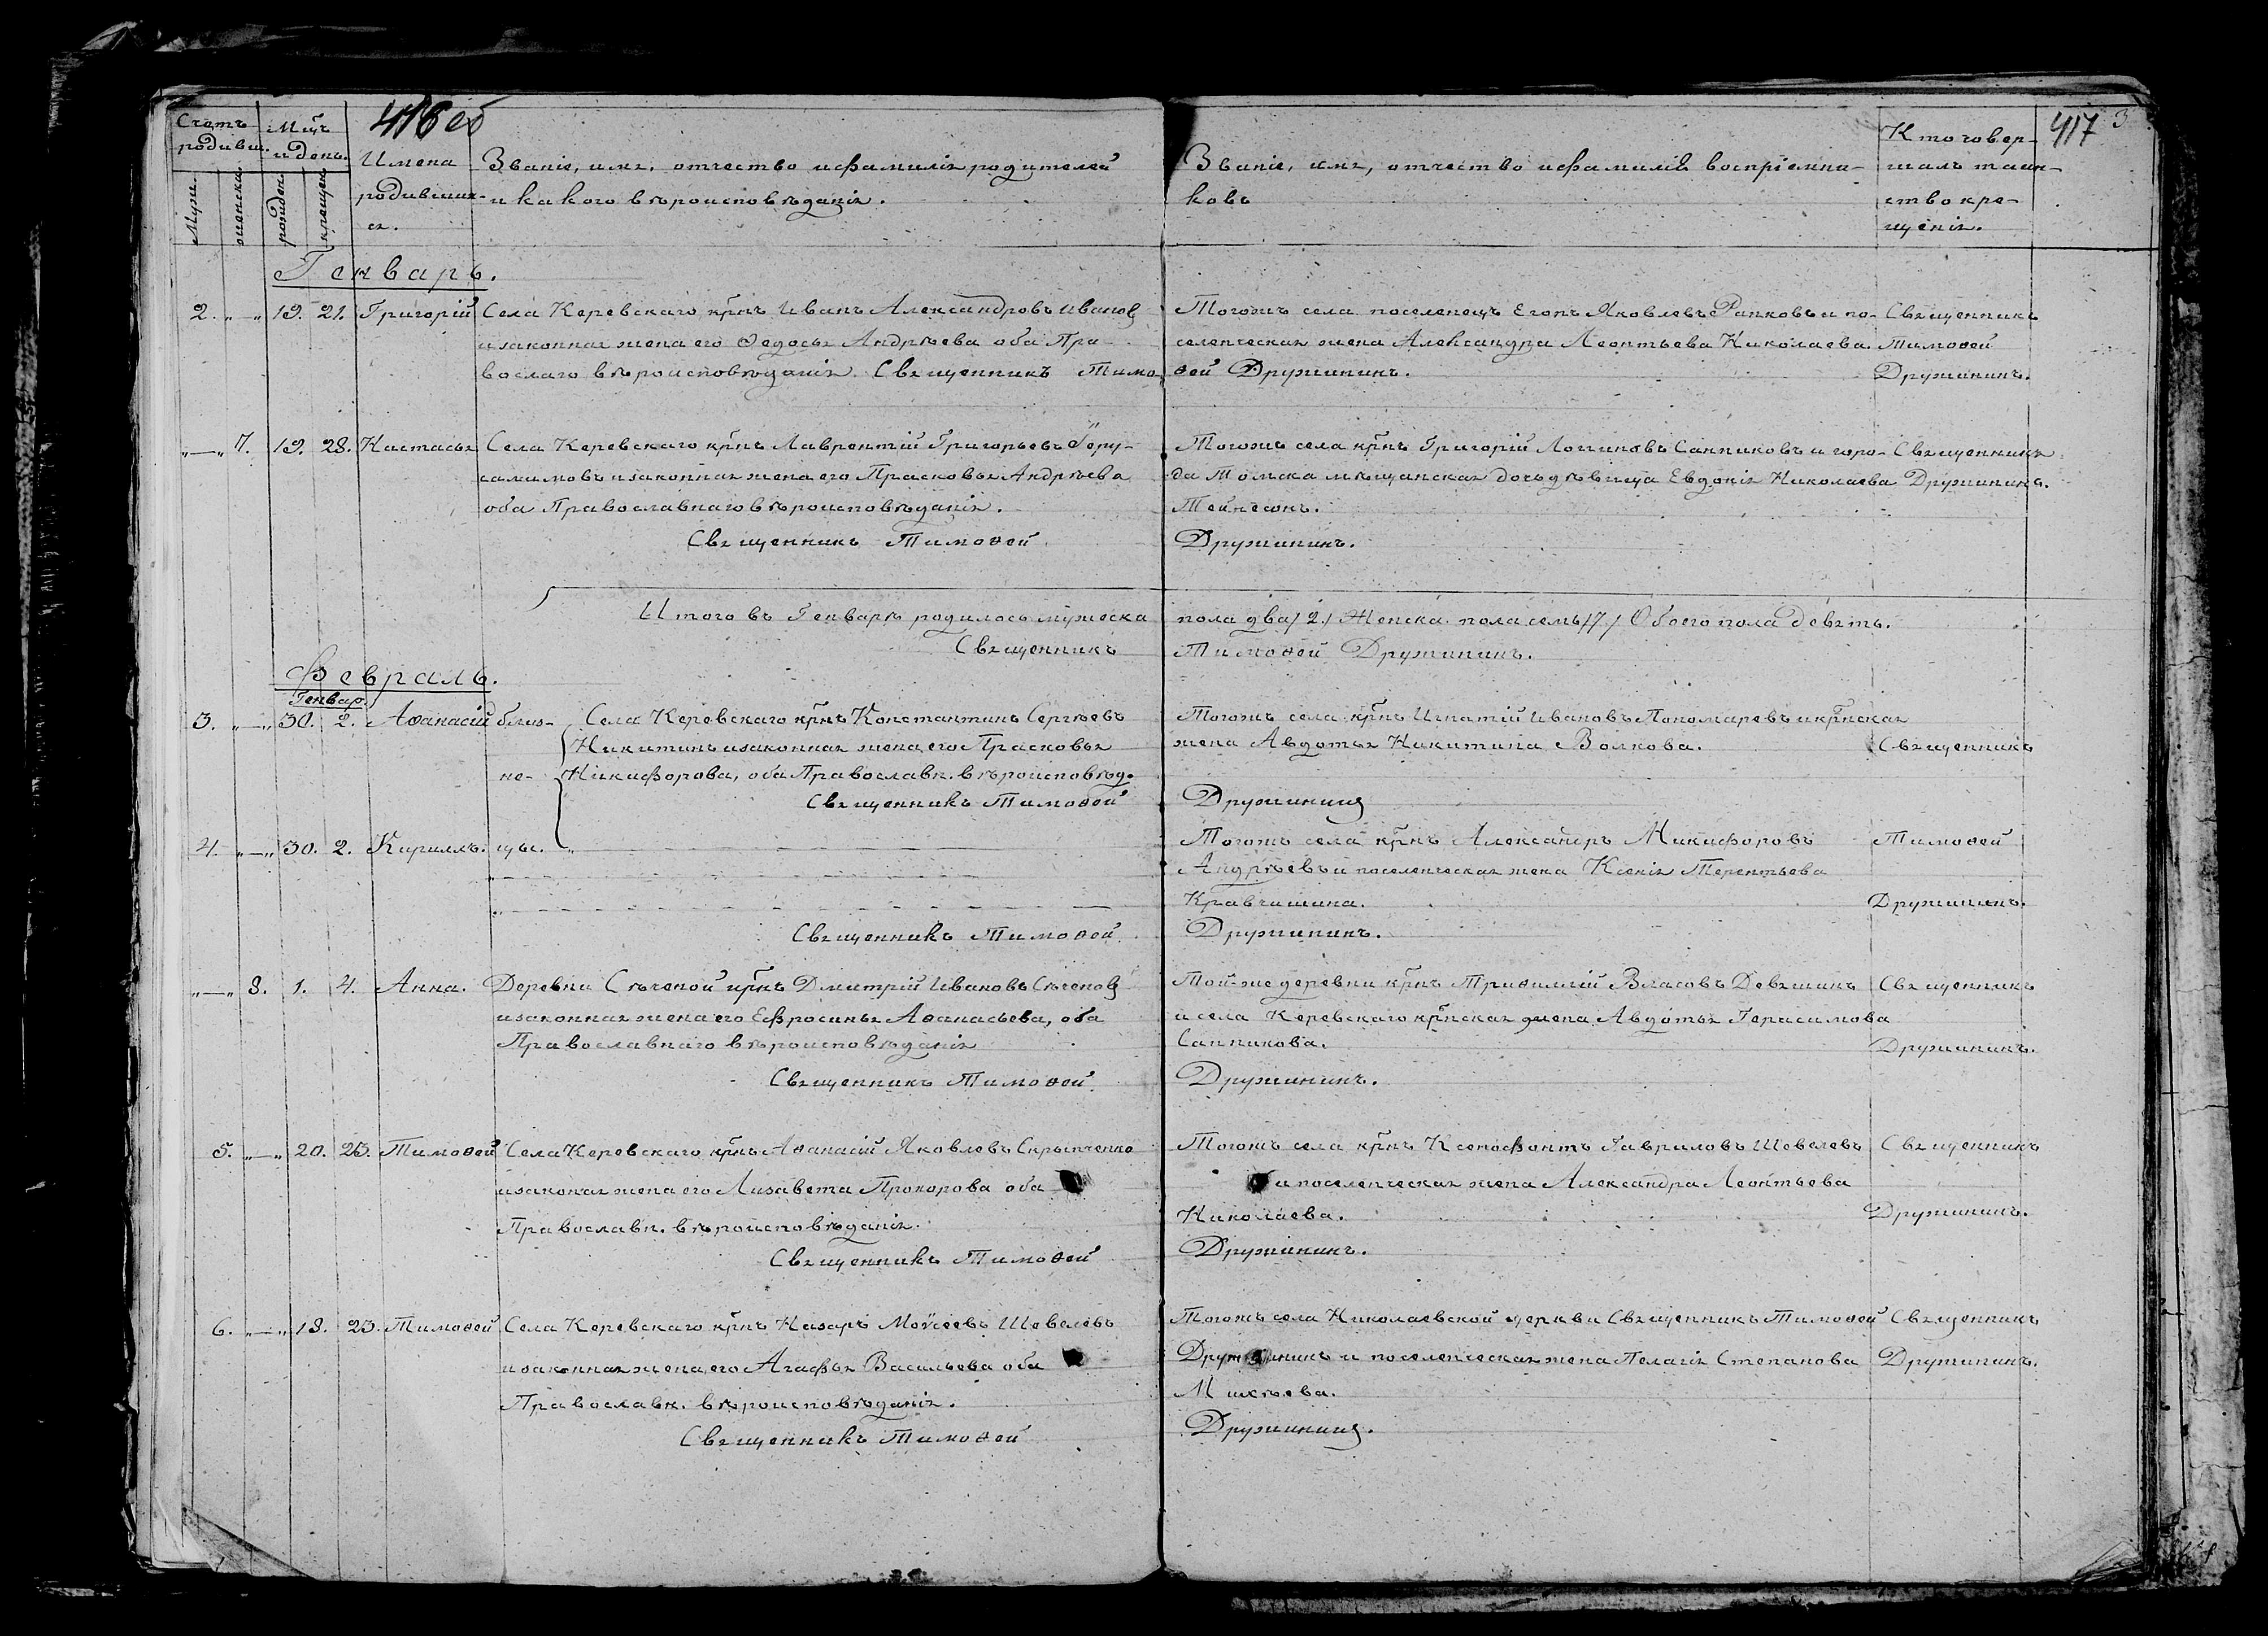 416 об
417 3
Счетъ родивш.
Мцъ и день.
Муж.
женска.
рожден.
крещен.
Имена родившихся.
Званіе, имя, отчество и фамилія родителей
и какого вѣроисповѣданія.
Званіе, имя, отчество и фамилія воспріемни-
ковъ
Кто совер-
шалъ таин-
ство кре-
щенія.
Генварь.
2. „—„ 19. 21. Григорій Села Керевскаго крнъ Иванъ Александровъ Иванов
и законная жена его Ѳедосья Андрѣева оба Пра-
вослаго вѣроисповѣданія. Священникъ Тимо
Тогожъ села поселенецъ Егоръ Яковлевъ и по- Священникъ
селенческая жена Александра Леонтьева Николаева. Тимоѳей
ѳей Дружининъ. Дружининъ.
„—„ 7. 19. 28. Настасья Села Керевскаго крнъ Лаврентій Григорьевъ Іеру-
салимовъ и законная жена его Прасковья Андрѣева
оба Православнаго вѣроисповѣданія.
Священникъ Тимоѳей
Тогожъ села крнъ Григорій Логиновъ Санниковъ и горо- Священникъ
да Томска мѣщанская дочь дѣвица Евдокія Николаева Дружининъ.
Дружининъ.
Итого въ Генварѣ родилось мужеска
пола два /2./ Женска пола семь /7/ Обоего пола девять.
Священникъ
Тимоѳей Дружининъ.
Февраль.
Генвар.
3. „—„ 30. 2. Аѳанасій близ- Села Керевскаго крнъ Константинъ Сергѣевъ
Никитинъ и законная жена его Прасковья
не- Никифорова, оба Православн. вѣроисповѣд.
Священникъ Тимоѳей
Тогожъ села крнъ Игнатій Ивановъ Пономаревъ и крнская
жена Авдотья Никитина Волкова. Священникъ
Дружинин
4. „—„ 30. 2. Кириллъ. цы. „
Священникъ Тимоѳей
Тогожъ села крнъ Александръ Никифоровъ Тимоѳей
Андрѣевъ и поселенческая жена Ксенія Терентьева
Кравчишина. Дружининъ.
Дружининъ.
„—„ 8. 1. 4. Анна. Деревни Сѣченой крнъ Дмитрій Ивановъ Сѣченов
и законная жена его Ефросинья Аѳанасьева, оба
Православнаго вѣроисповѣданія
Священникъ Тимоѳей
Той-же деревни крнъ Трифиллій Власовъ Девяшинъ Священникъ
и села Керевскаго крнская жена Авдотья Герасимова
Санникова. Дружининъ.
Дружининъ.
5. „—„ 20. 23. Тимоѳей Села Керевскаго крнъ Аѳанасій Яковлевъ Скрыпченко
и законая жена его Лизавета Прохорова оба
Православн. вѣроисповѣданія.
Священникъ Тимоѳей
Тогожъ села крнъ Ксенофонтъ Гавриловъ Шевелевъ Священникъ
и поселенческая жена Александра Леонтьева
Николаева. Дружининъ.
Дружининъ.
6. „—„ 18. 23. Тимоѳей Села Керевскаго крнъ Назаръ Моѵсеевъ Шевелевъ
и законная жена его Агафья Васильева оба
Православн. вѣроисповѣданія.
Священникъ Тимоѳей
Тогожъ села Николаевской церкви Священникъ Тимоѳей Священникъ
Дружининъ и поселенческая жена Пелагія Степанова Дружининъ.
Михѣева.
Дружинин.